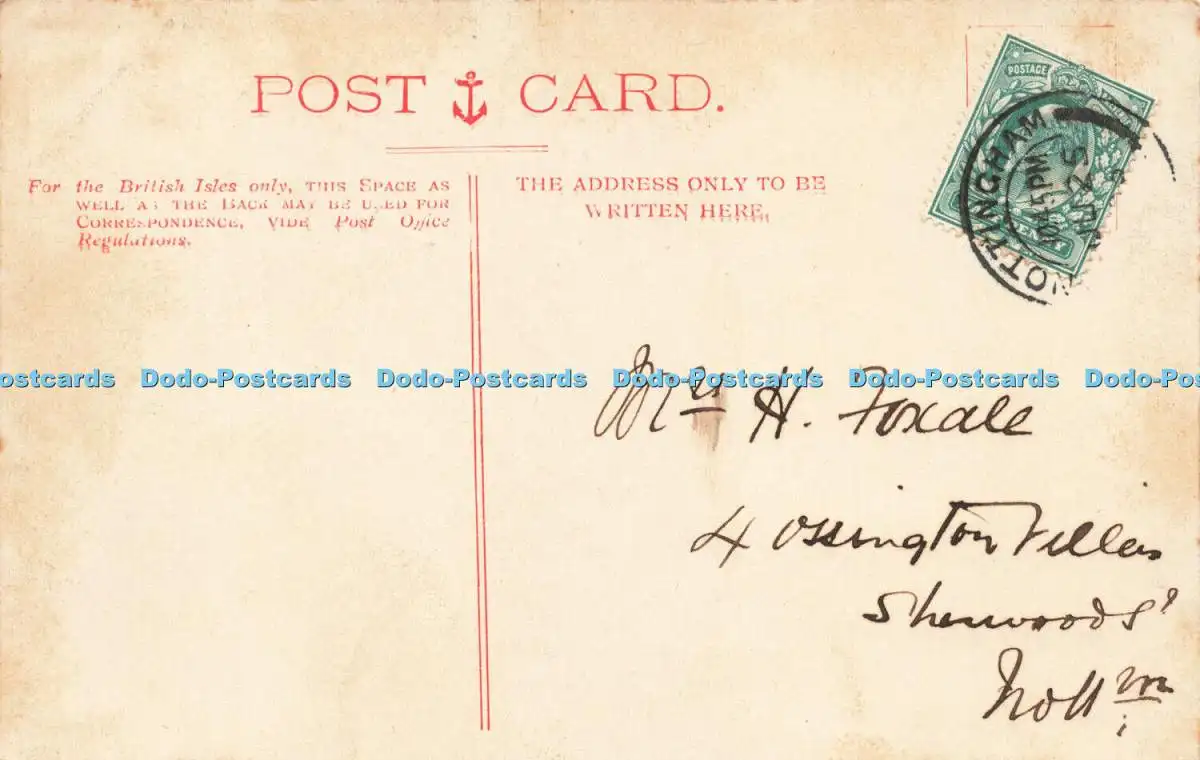 POST CARD.
For the British Isles only, THIS SPACE AS
WELL AS THE BACK MAY BE USED FOR
CORRESPONDENCE, VIDE Post Office
Regulations.
THE ADDRESS ONLY TO BE
WRITTEN HERE.
POSTAGE
NOTTINGHAM
10.45 PM
25
Dodo-Postcards Dodo-Postcards Dodo-Postcards Dodo-Postcards
Mrs H. Foxale
4 Ossington Villas
Sherwood St
Nottm